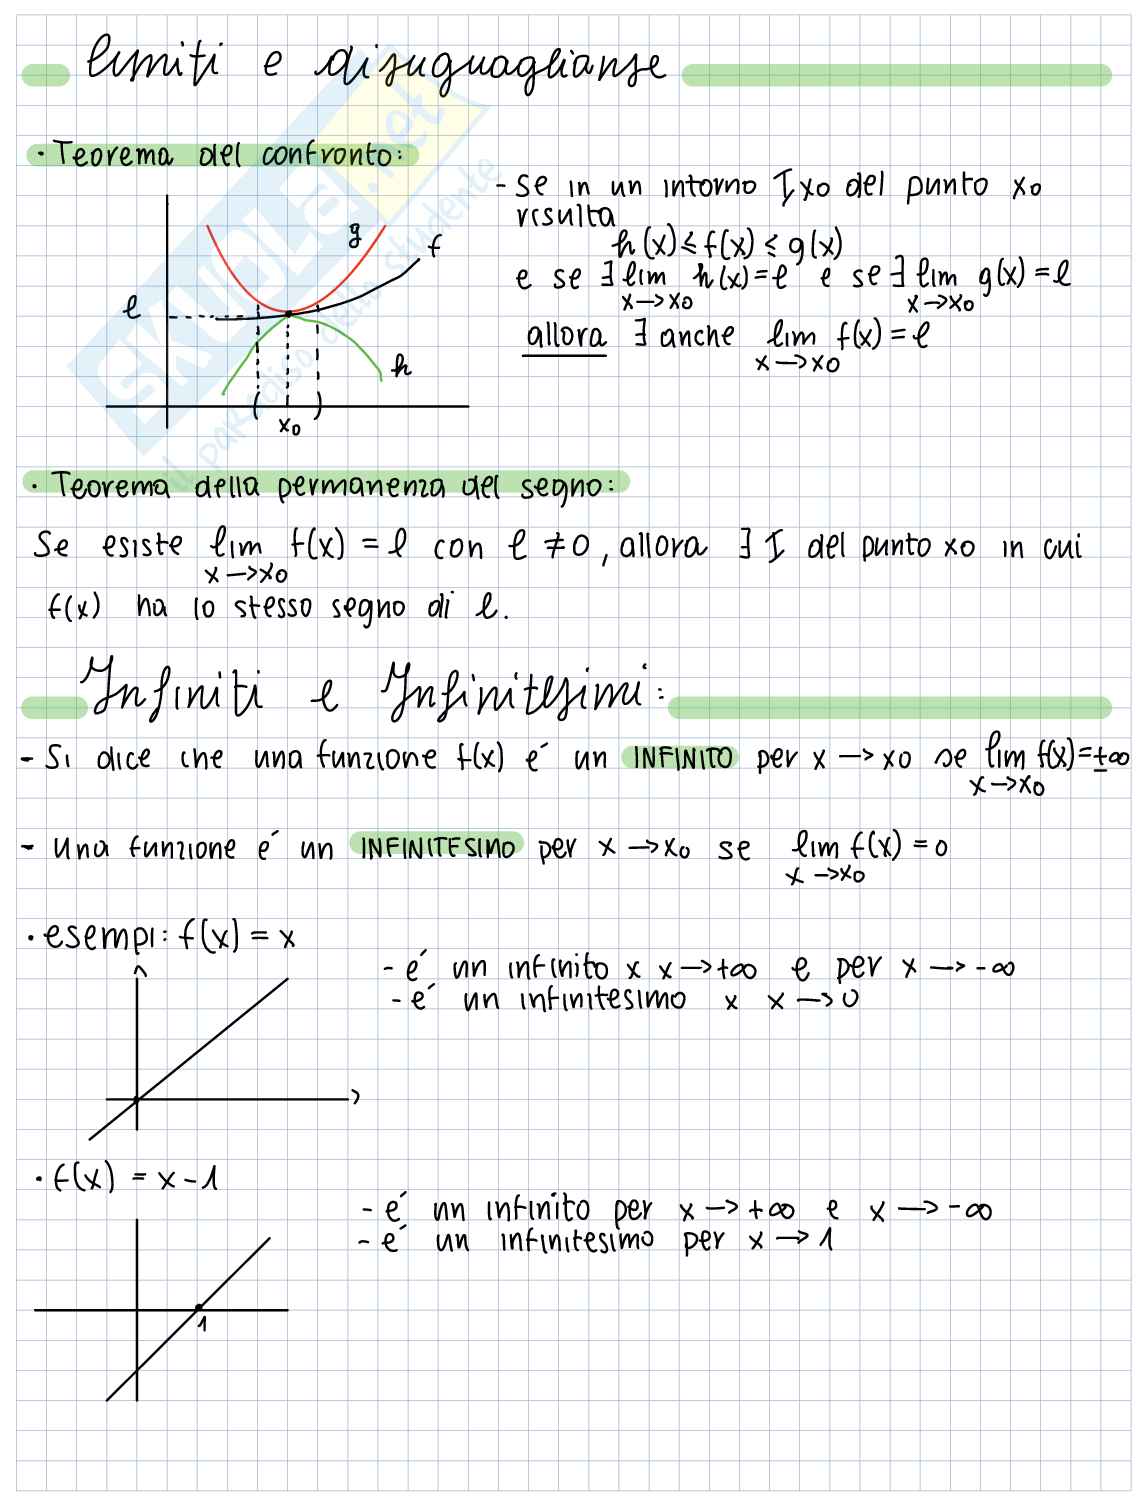 limiti e disuguaglianze
· Teorema del confronto:
- se in un intorno Ix0 del punto x0
risulta
h(x) ≤ f(x) ≤ g(x)
e se ∃ lim h(x) = l e se ∃ lim g(x) = l
x→x0 x→x0
allora ∃ anche lim f(x) = l
x→x0
g
f
l
h
( x0 )
· Teorema della permanenza del segno:
Se esiste lim f(x) = l con l ≠ 0, allora ∃ I del punto x0 in cui
x→x0
f(x) ha lo stesso segno di l.
Infiniti e Infinitesimi:
- Si dice che una funzione f(x) é un INFINITO per x→x0 se lim f(x)=±∞
x→x0
- Una funzione é un INFINITESIMO per x→x0 se lim f(x) = 0
x→x0
· esempi: f(x) = x
- é un infinito x x→+∞ e per x→-∞
- é un infinitesimo x x→0
· f(x) = x-1
- é un infinito per x→+∞ e x→-∞
- é un infinitesimo per x→1
1
SKUOLA.net
il paradiso dello studente